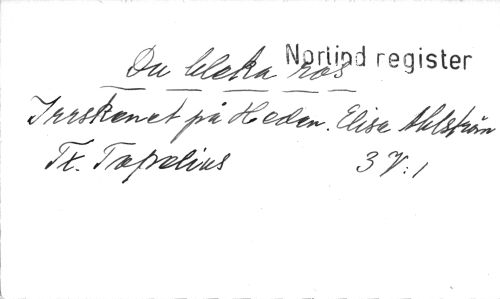 Nortind register
Du bleka ros
Irrskenet på Heden. Elise Ahlström
Tx. Topelius 3 V:1